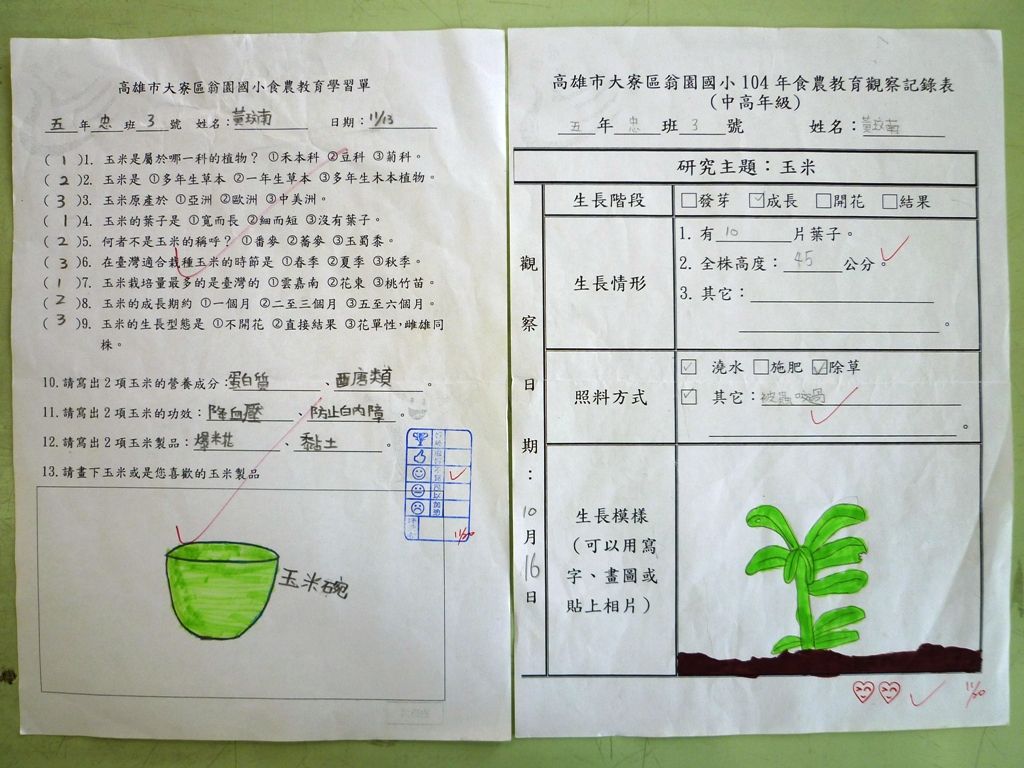 高雄市大寮區翁園國小食農教育學習單
五 年 忠 班 3 號 姓名：黃玟南 日期：11/13
( 1 )1. 玉米是屬於哪一科的植物？ ①禾本科 ②豆科 ③菊科。
( 2 )2. 玉米是 ①多年生草本 ②一年生草本 ③多年生木本植物。
( 3 )3. 玉米原產於 ①亞洲 ②歐洲 ③中美洲。
( 1 )4. 玉米的葉子是 ①寬而長 ②細而短 ③沒有葉子。
( 2 )5. 何者不是玉米的稱呼？ ①番麥 ②蕎麥 ③玉蜀黍。
( 3 )6. 在臺灣適合栽種玉米的時節是 ①春季 ②夏季 ③秋季。
( 1 )7. 玉米栽培量最多的是臺灣的 ①雲嘉南 ②花東 ③桃竹苗。
( 2 )8. 玉米的成長期約 ①一個月 ②二至三個月 ③五至六個月。
( 3 )9. 玉米的生長型態是 ①不開花 ②直接結果 ③花單性，雌雄同
株。
10.請寫出2項玉米的營養成分：蛋白質、醣類。
11.請寫出2項玉米的功效：降血壓、防止白內障。
12.請寫出2項玉米製品：爆米花、黏土。
13.請畫下玉米或是您喜歡的玉米製品
玉米碗
11/20
高雄市大寮區翁園國小104年食農教育觀察記錄表
（中高年級）
五 年 忠 班 3 號 姓名：黃玟南
研究主題：玉米
觀察日期：10月16日
生長階段 □發芽 ☑成長 □開花 □結果
生長情形
1. 有 10 片葉子。
2. 全株高度：45 公分。
3. 其它：
。
照料方式
☑ 澆水 □施肥 ☑除草
☑ 其它：被蟲咬過
。
生長模樣
（可以用寫
字、畫圖或
貼上相片）
11/20